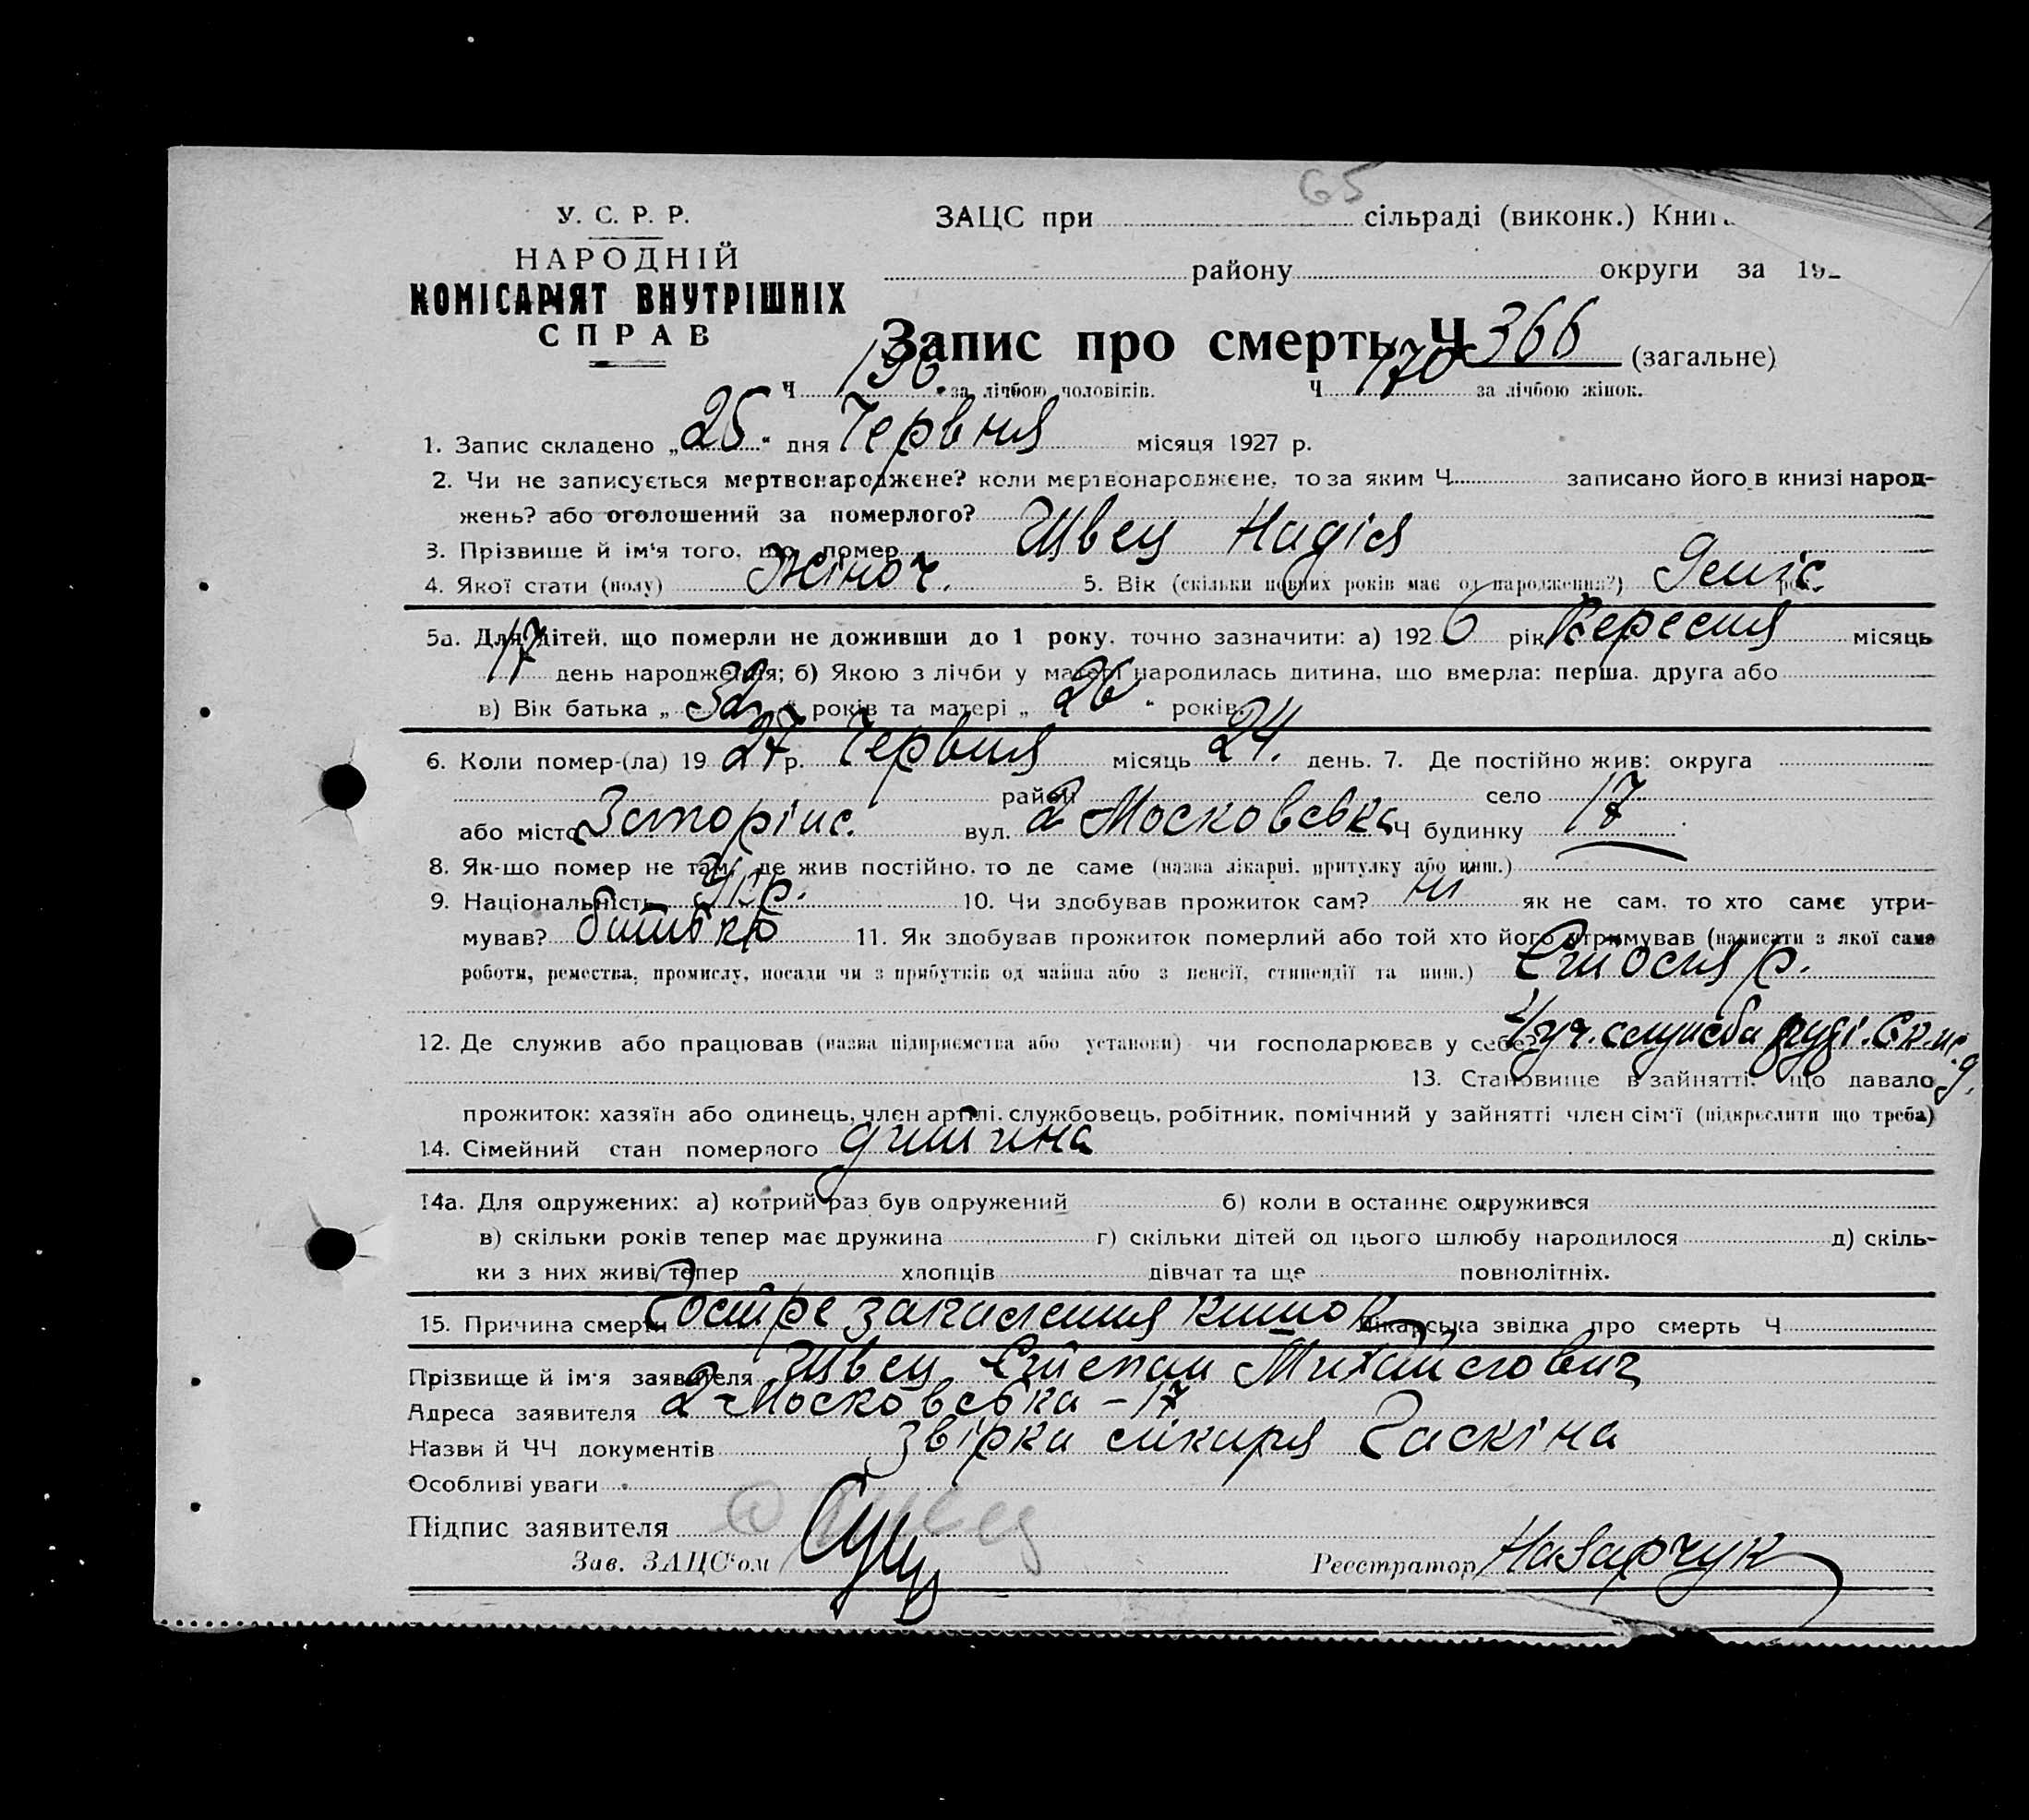 65
У. С. Р. Р.
НАРОДНІЙ
КОМІСАРІЯТ ВНУТРІШНІХ
СПРАВ
ЗАЦС при сільраді (виконк.)
району округи за 19
Запис про смерть Ч 366 (загальне)
Ч 196 за лічбою чоловіків. Ч 170 за лічбою жінок.
1. Запис складено „25“ дня Червня місяця 1927 р.
2. Чи не записується мертвонароджене? коли мертвонароджене, то за яким Ч записано його в книзі народ-
жень? або оголошений за померлого?
3. Прізвище й ім'я того, що помер Швец Надія
4. Якої стати (полу) Жіноч. 5. Вік (скільки повних років має од народження?) 9 міс.
5а. Для дітей, що померли не доживши до 1 року, точно зазначити: а) 1926 рік Вересня місяць
17 день народження; б) Якою з лічби у матері народилась дитина, що вмерла: перша, друга або
в) Вік батька „32“ років та матері „26“ років.
6. Коли помер-(ла) 1927 р. Червня місяць 24. день. 7. Де постійно жив: округа
район село
або місто вул. 2 Московська Ч будинку 17
8. Як-що помер не там, де жив постійно, то де саме (назва лікарні, притулку або инш.)
9. Національність Укр. 10. Чи здобував прожиток сам? ні як не сам, то хто саме утри-
мував? батько 11. Як здобував прожиток померлий або той хто його утримував (написати з якої само
роботи, ремества, промислу, посади чи з прибутків од майна або з пенсії, стипендії та инш.)
12. Де служив або працював (назва підприємства або установи) чи господарював у себе? служба
13. Становище в зайнятті, що давало
прожиток: хазяїн або одинець, член артілі, службовець, робітник, помічний у зайнятті член сім'ї (підкреслити що треба)
14. Сімейний стан померлого дитина
14а. Для одружених: а) котрий раз був одружений б) коли в останнє одружився
в) скільки років тепер має дружина г) скільки дітей од цього шлюбу народилося д) скіль-
ки з них живі тепер хлопців дівчат та ще повнолітніх.
15. Причина смерти Гостре запалення кишок Лікарська звідка про смерть Ч
Прізвище й ім'я заявителя Швец Степан Михайлович
Адреса заявителя 2 Московська – 17
Назви й ЧЧ документів звірка лікаря Гаскіна
Особливі уваги
Підпис заявителя Швец
Зав. ЗАЦС'ом Реєстратор Назарчук